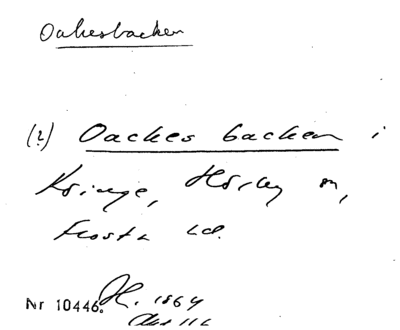 Oakesbacken
(?) Oackes backen i
Kringe, Hörby sn,
Frosta hd.
Nr 10446. H. 1864